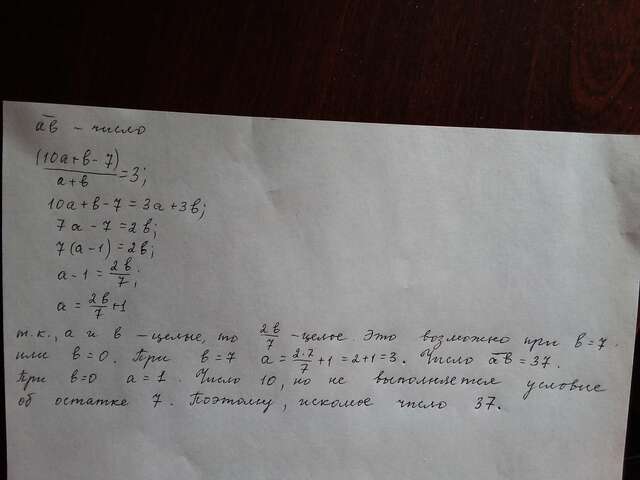 ab - число
(10a+b-7)/(a+b)=3;
10a+b-7=3a+3b;
7a-7=2b;
7(a-1)=2b;
a-1=2b/7;
a=2b/7+1
т.к., a и b - целые, то 2b/7 - целые. Это возможно при b=7.
или b=0. При b=7 a=2·7/7+1=2+1=3. Число ab=37.
при b=0 a=1. Число 10, но не выполняется условие
об остатке 7. Поэтому, искомое число 37.